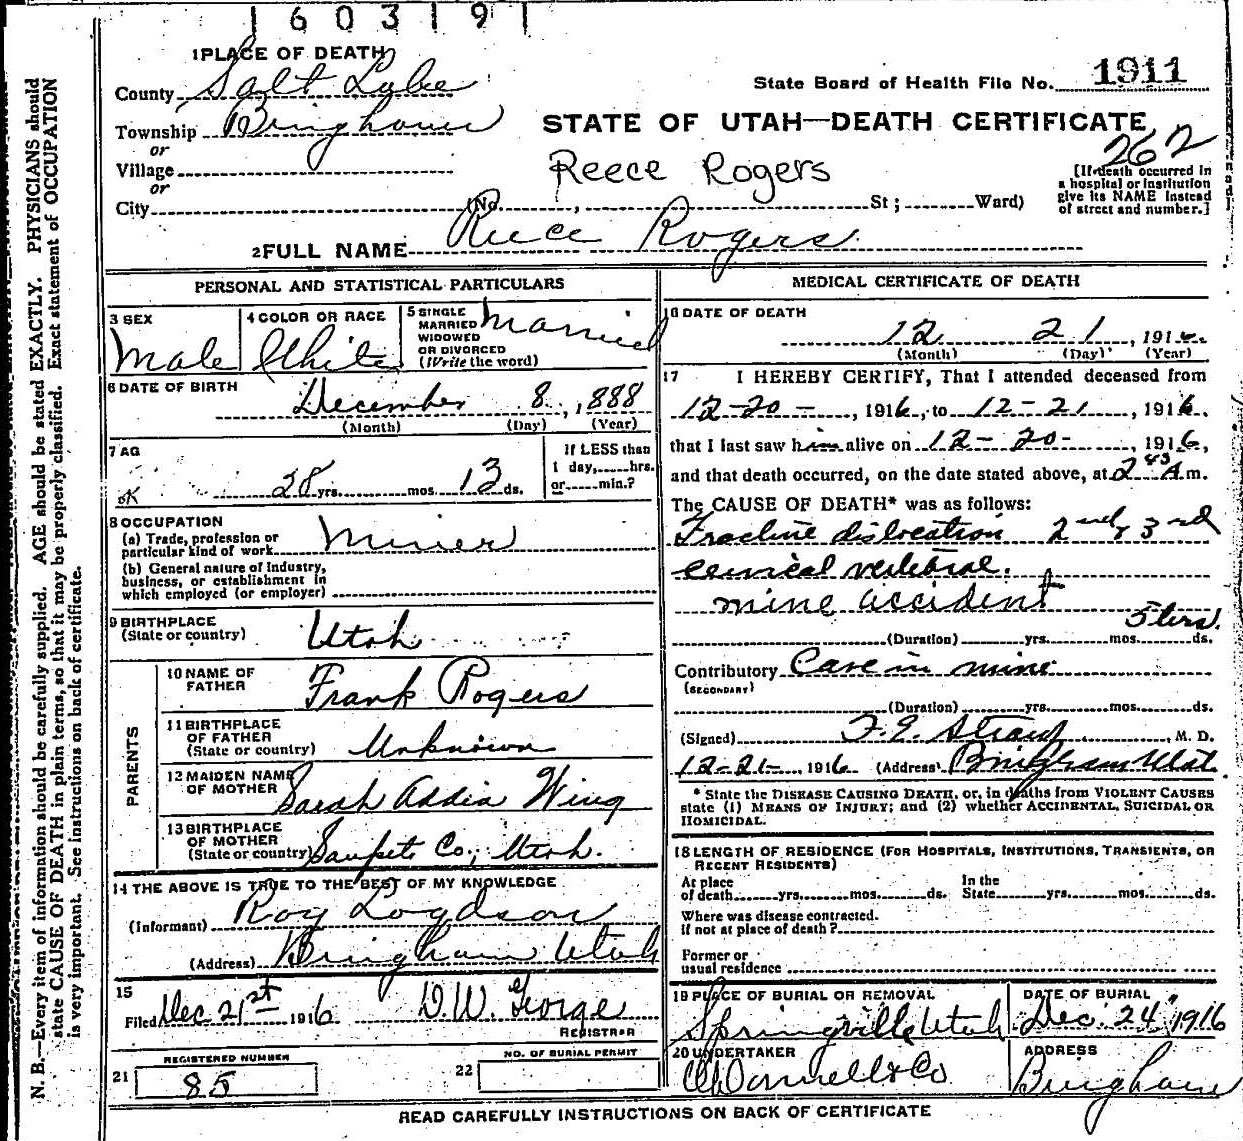 160319
1 PLACE OF DEATH
County Salt Lake
State Board of Health File No. 1911
Township Bingham
STATE OF UTAH—DEATH CERTIFICATE
or
262
Village
Reece Rogers
or
[If death occurred in a hospital or institution give its NAME instead of street and number.]
City (No. , St ; Ward)
2 FULL NAME Reece Rogers
PERSONAL AND STATISTICAL PARTICULARS
3 SEX
Male
4 COLOR OR RACE
White
5 SINGLE
MARRIED
WIDOWED
OR DIVORCED
(Write the word)
Married
6 DATE OF BIRTH
December 8, 1888
(Month) (Day) (Year)
7 AG
OK 28 yrs. mos. 13 ds.
If LESS than
1 day, hrs.
or min.?
8 OCCUPATION
(a) Trade, profession or
particular kind of work Miner
(b) General nature of Industry,
business, or establishment in
which employed (or employer)
9 BIRTHPLACE
(State or country) Utah
PARENTS
10 NAME OF
FATHER Frank Rogers
11 BIRTHPLACE
OF FATHER
(State or country) Unknown
12 MAIDEN NAME
OF MOTHER Sarah Addia Wing
13 BIRTHPLACE
OF MOTHER
(State or country) Sanpete Co., Utah.
14 THE ABOVE IS TRUE TO THE BEST OF MY KNOWLEDGE
(Informant) Roy Logdson
(Address) Bingham Utah
15
Filed Dec 21st 1916 D.W. George
REGISTRAR
REGISTERED NUMBER
21 85
NO. OF BURIAL PERMIT
22
MEDICAL CERTIFICATE OF DEATH
16 DATE OF DEATH
12 21, 1916.
(Month) (Day) (Year)
17 I HEREBY CERTIFY, That I attended deceased from
12-20-, 1916, to 12-21, 1916.
that I last saw him alive on 12-20-, 1916,
and that death occurred, on the date stated above, at 2 45 A m.
The CAUSE OF DEATH* was as follows:
Fracture dislocation 2nd & 3rd
cervical vertebrae.
mine accident
5 hrs.
(Duration) yrs. mos. ds.
Contributory Cave in mine
(SECONDARY)
(Duration) yrs. mos. ds.
(Signed) F.E. Straup, M. D.
12-21-, 1916 (Address) Bingham Utah
* State the DISEASE CAUSING DEATH, or, in deaths from VIOLENT CAUSES
state (1) MEANS OF INJURY; and (2) whether ACCIDENTAL, SUICIDAL OR
HOMICIDAL.
18 LENGTH OF RESIDENCE (FOR HOSPITALS, INSTITUTIONS, TRANSIENTS, OR
RECENT RESIDENTS)
At place
of death yrs. mos. ds.
In the
State yrs. mos. ds.
Where was disease contracted.
if not at place of death?
Former or
usual residence
19 PLACE OF BURIAL OR REMOVAL
Springville Utah
DATE OF BURIAL
Dec. 24, 1916
20 UNDERTAKER
O'Donnell & Co
ADDRESS
Bingham
READ CAREFULLY INSTRUCTIONS ON BACK OF CERTIFICATE
N. B.—Every item of information should be carefully supplied. AGE should be stated EXACTLY. PHYSICIANS should
state CAUSE OF DEATH in plain terms, so that it may be properly classified. Exact statement of OCCUPATION
is very important. See instructions on back of certificate.